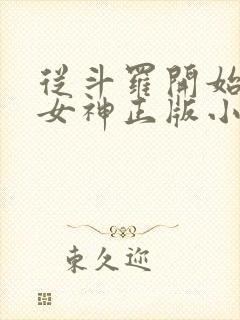 從斗羅開始
女神正版小
東久迩